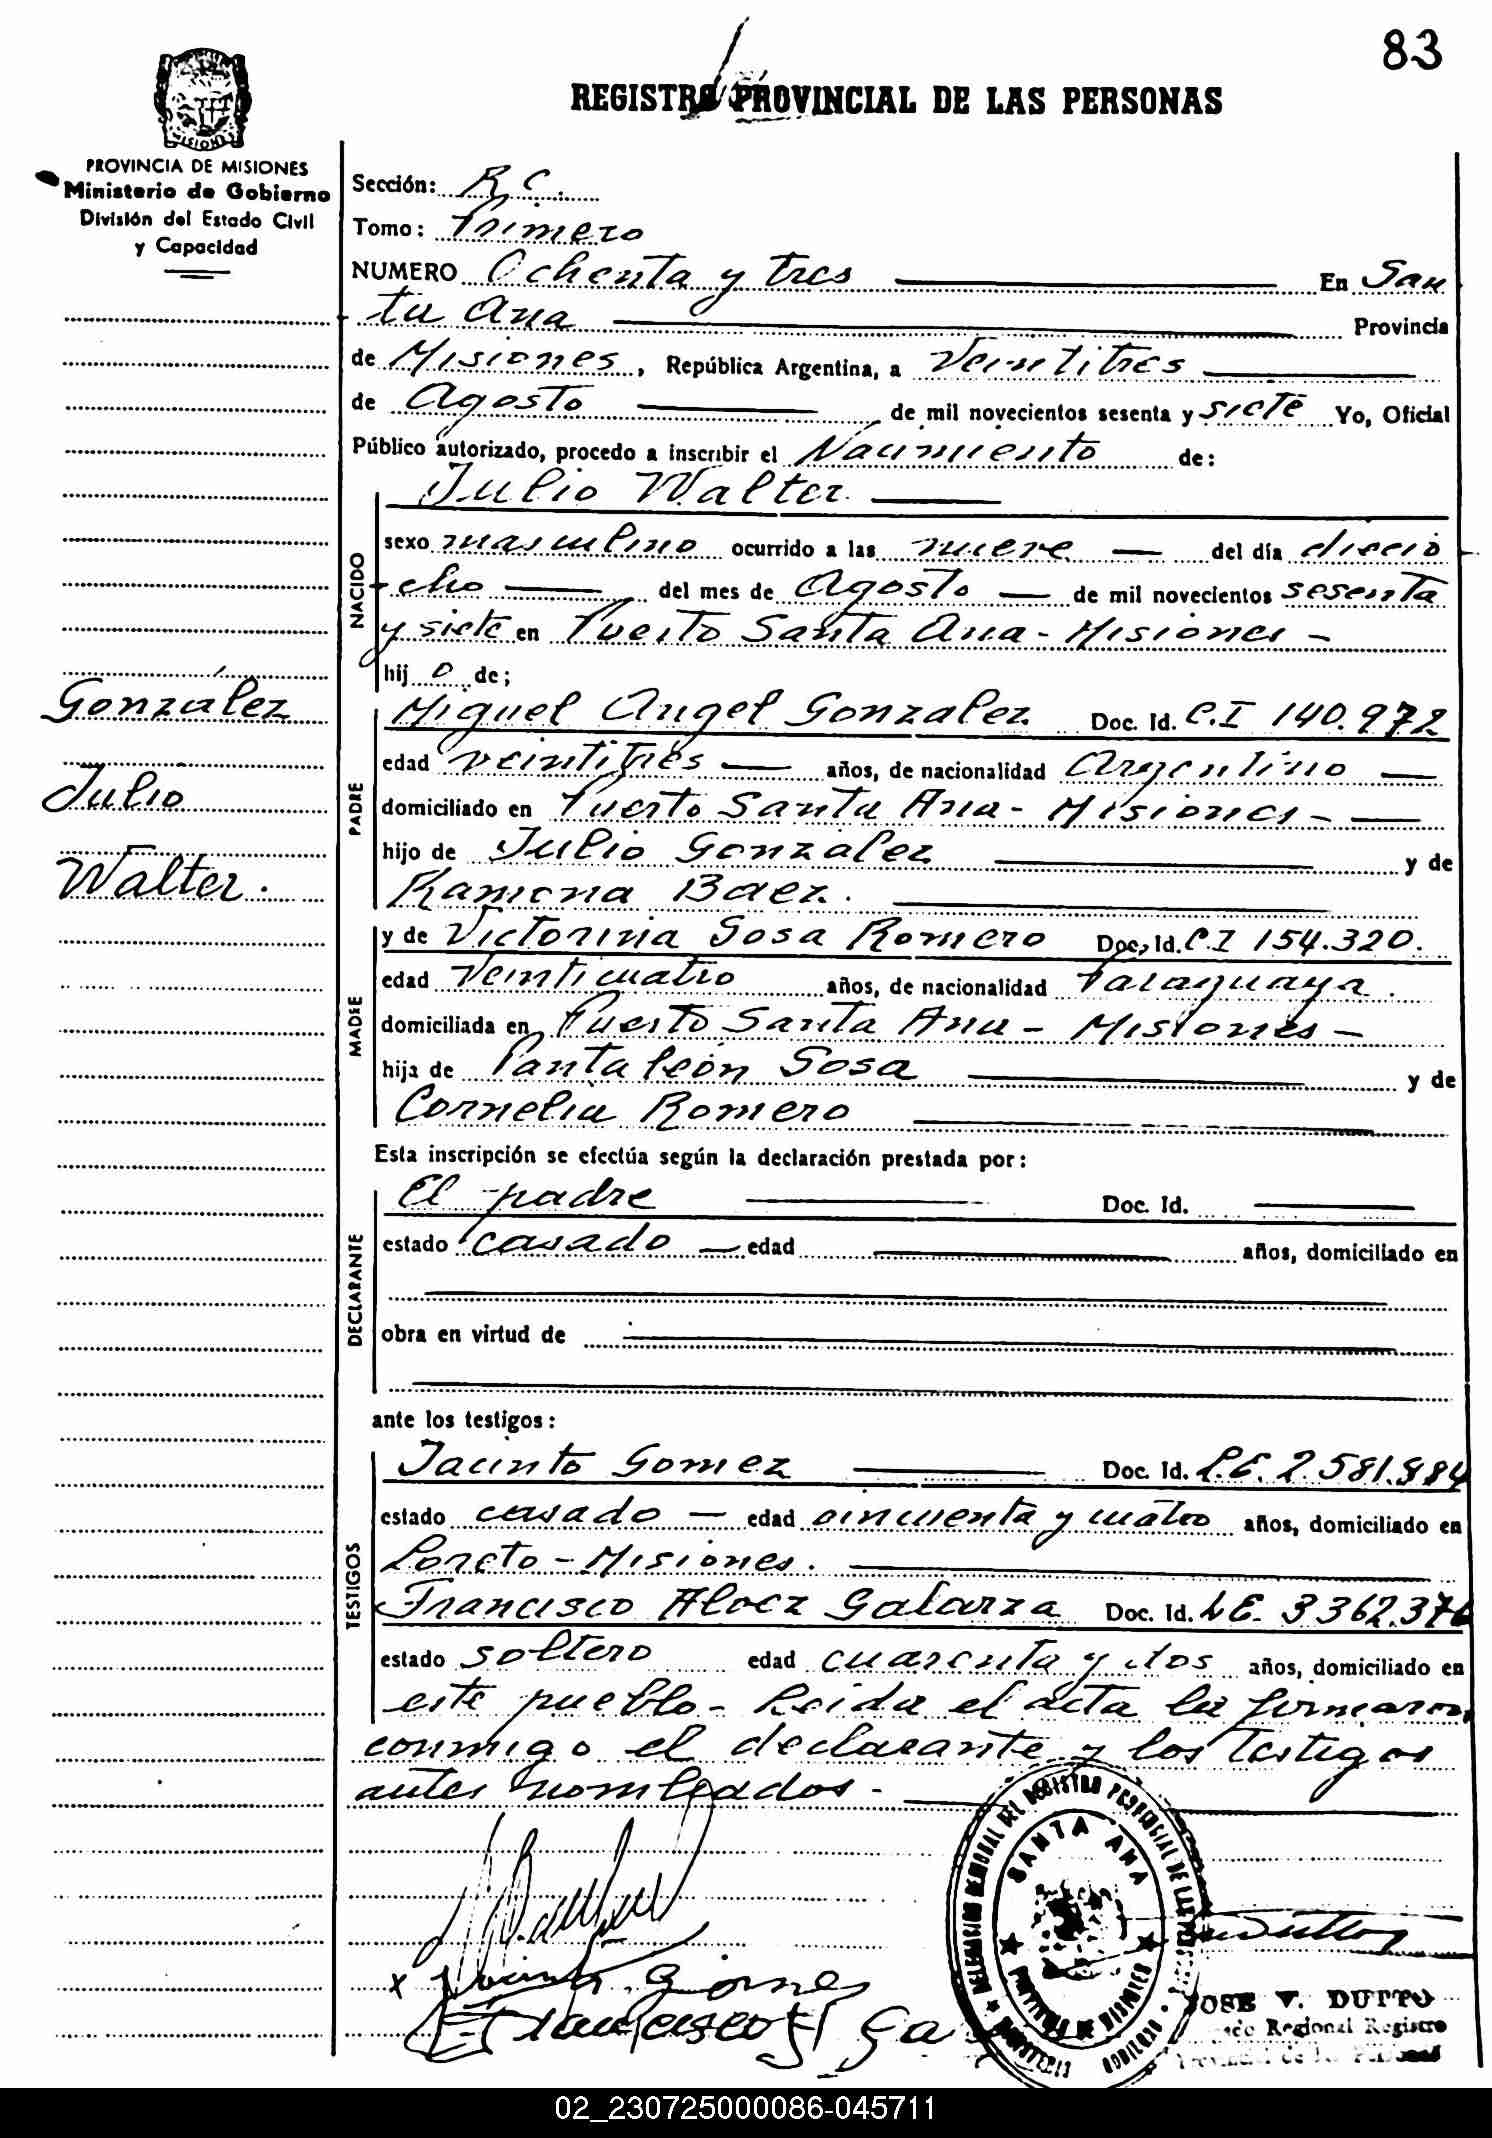 83
REGISTRO PROVINCIAL DE LAS PERSONAS
MISIONES
PROVINCIA DE MISIONES
Ministerio de Gobierno
División del Estado Civil
y Capacidad
Sección: R. C.
Tomo: Primero
NUMERO Ochenta y tres En San
ta Ana Provincia
de Misiones, República Argentina, a Veintitres
de Agosto de mil novecientos sesenta y siete Yo, Oficial
Público autorizado, procedo a inscribir el Nacimiento de:
Julio Walter
NACIDO
sexo masculino ocurrido a las nueve del día diecio
cho del mes de Agosto de mil novecientos sesenta
y siete en Puerto Santa Ana - Misiones -
hij o de;
González
Julio
Walter.
PADRE
Miguel Angel Gonzalez Doc. Id. C.I 140.972
edad veintitrés años, de nacionalidad Argentino
domiciliado en Puerto Santa Ana - Misiones -
hijo de Julio Gonzalez y de
Ramona Baez.
MADRE
y de Victorina Sosa Romero Doc. Id. C.I 154.320.
edad Veinticuatro años, de nacionalidad Paraguaya.
domiciliada en Puerto Santa Ana - Misiones -
hija de Pantaleón Sosa y de
Cornelia Romero
Esta inscripción se efectúa según la declaración prestada por:
DECLARANTE
El padre Doc. Id.
estado casado edad años, domiciliado en
obra en virtud de
ante los testigos:
TESTIGOS
Jacinto Gomez Doc. Id. L.E. 2.581.884
estado casado edad cincuenta y cuatro años, domiciliado en
Loreto - Misiones.
Francisco Alocz Galarza Doc. Id. L.E. 3362.376
estado soltero edad cuarenta y dos años, domiciliado en
este pueblo - Leida el acta la firmaron
conmigo el declarante y los testigos
antes nombrados -
REGISTRO PROVINCIAL DE LAS
SANTA ANA
PROVINCIA DE MISIONES
Francisco
JOSE V. DUTTO
Regional Registro
Provincial de las Personas
02_230725000086-045711